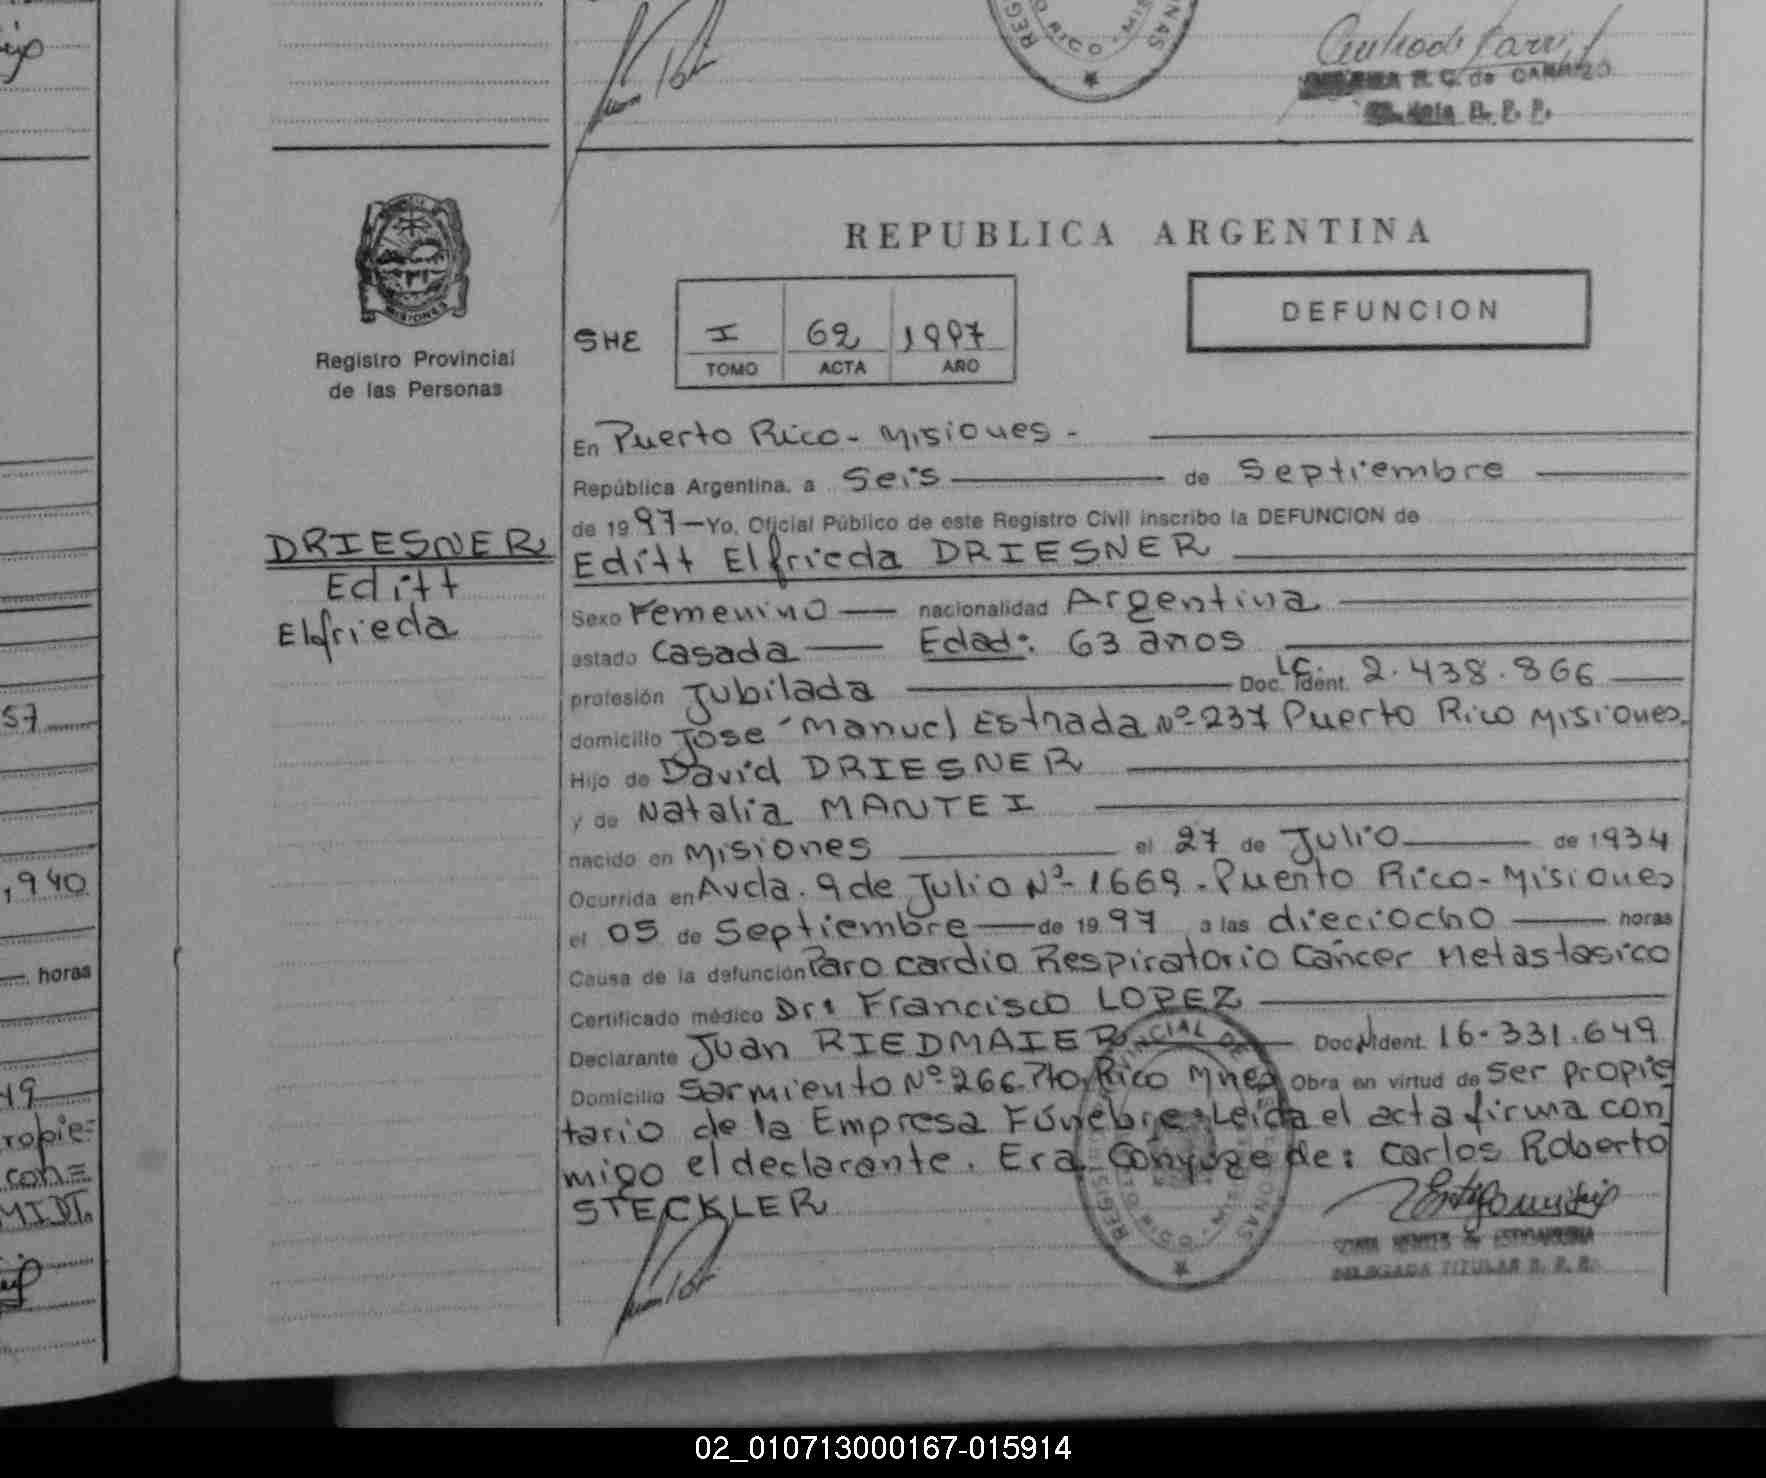 REPUBLICA ARGENTINA
MISIONES
Registro Provincial
de las Personas
SHE
I 62 1997
TOMO ACTA AÑO
DEFUNCION
En Puerto Rico - Misiones -
República Argentina, a Seis de Septiembre
de 1997 — Yo, Oficial Público de este Registro Civil inscribo la DEFUNCION de
DRIESNER
Editt
Elfrieda
Editt Elfrieda DRIESNER
Sexo Femenino nacionalidad Argentina
estado Casada Edad: 63 anos
profesión Jubilada Doc. Ident. LC. 2.438.866
domicilio Jose Manuel Estrada Nº 237 Puerto Rico Misiones.
Hijo de David DRIESNER
y de Natalia MANTEI
nacido en Misiones el 27 de Julio de 1934
Ocurrida en Avda. 9 de Julio Nº 1669. Puerto Rico - Misiones
el 05 de Septiembre de 1997 a las dieciocho horas
Causa de la defunción Paro cardio Respiratorio Cáncer Metastasico
Certificado médico Dr: Francisco LOPEZ
Declarante Juan RIEDMAIER Doc. Ident. 16.331.649
Domicilio Sarmiento Nº 266. Pto. Rico Mnes Obra en virtud de ser propie
tario de la Empresa Fúnebre. Leida el acta firma con
migo el declarante. Era Cónyuge de: Carlos Roberto
STECKLER
DELEGADA TITULAR R. P. P.
57
1,940
horas
49
ropie=
con=
MIDT.
R. C. de
R. P. P.
02_010713000167-015914